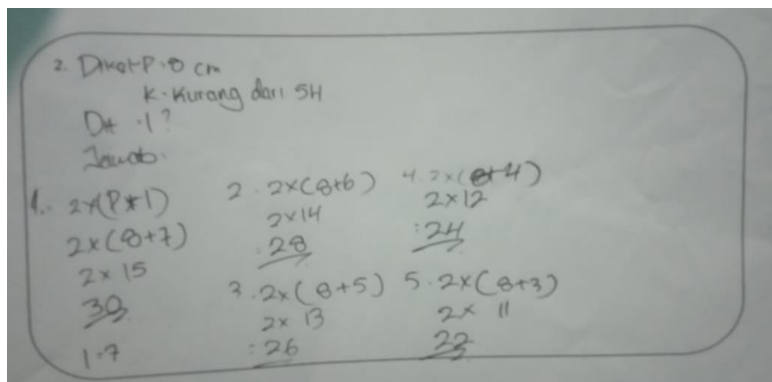 2. Diket P : 8 cm
K. Kurang dari 54
Dit : l ?
Jawab:
1. 2x(P+l)
2x(8+7)
2x 15
30
l = 7
2. 2x(8+6)
2x14
: 28
3. 2x(8+5)
2x 13
: 26
4. 2x(8+4)
2x12
: 24
5. 2x(8+3)
2x 11
22